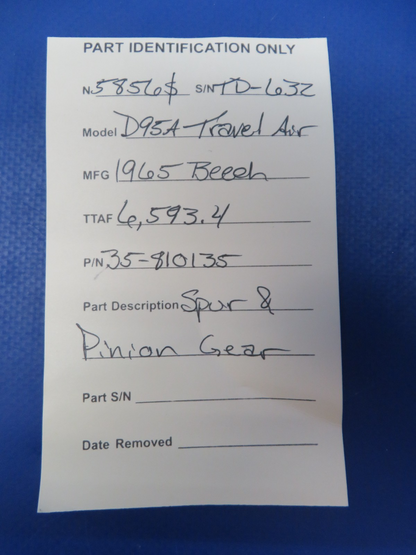 PART IDENTIFICATION ONLY
N. 5856$ S/N TD-632
Model D95A Travel Air
MFG 1965 Beech
TTAF 6,593.4
P/N 35-810135
Part Description Spur &
Pinion Gear
Part S/N
Date Removed